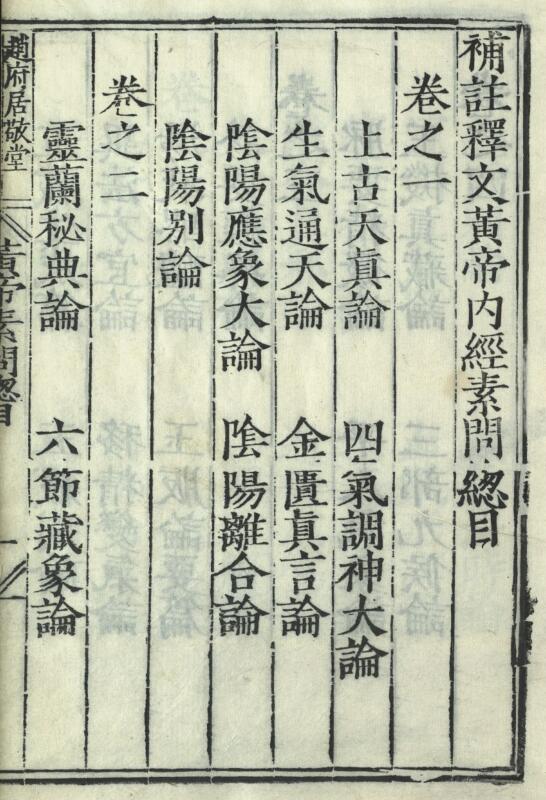 補註釋文黃帝内經素問總目
卷之一
上古天真論　四氣調神大論
生氣通天論　金匱真言論
陰陽應象大論　陰陽離合論
陰陽别論
卷之二
靈蘭秘典論　六節藏象論
趙府居敬堂　黃帝素問總目　一